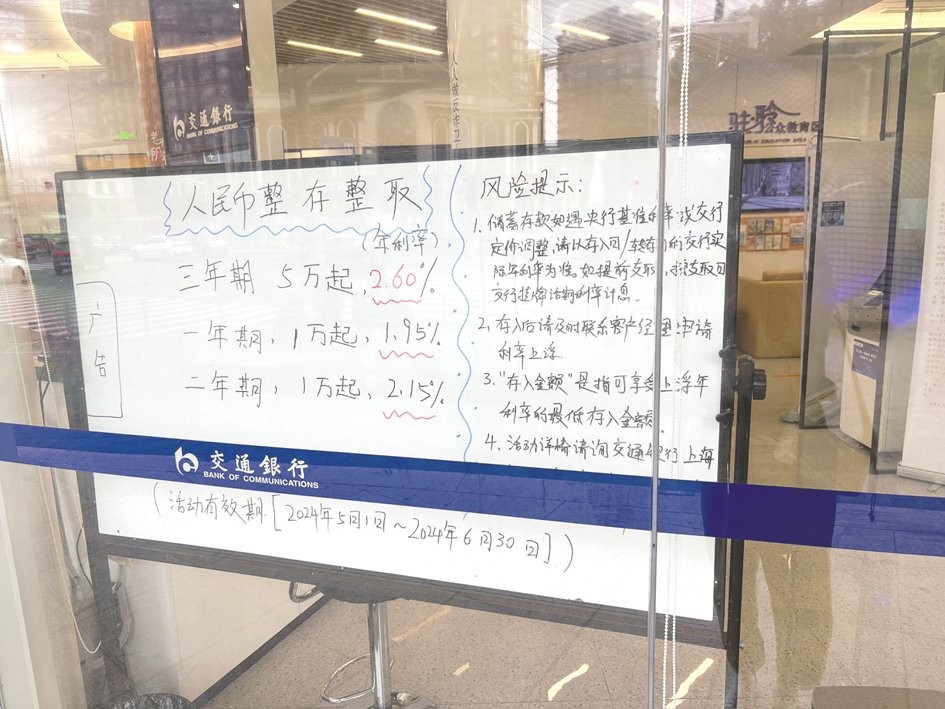 交通銀行
BANK OF COMMUNICATIONS
人人做反诈卫
众教育区
广告
人民币整存整取
(年利率)
三年期 5万起, 2.60%
一年期, 1万起, 1.95%
二年期, 1万起, 2.15%
风险提示:
1. 储蓄存款如遇央行基准利率或交行
定价调整, 请以存入日/转存日的交行实
际年利率为准, 如提前支取, 按支取日
交行挂牌活期利率计息.
2. 存入后请及时联系客户经理申请
利率上浮.
3. "存入金额"是指可享受上浮年
利率的最低存入金额.
4. 活动详情请询交通银行上海
交通銀行
BANK OF COMMUNICATIONS
(活动有效期:[2024年5月1日~2024年6月30日])